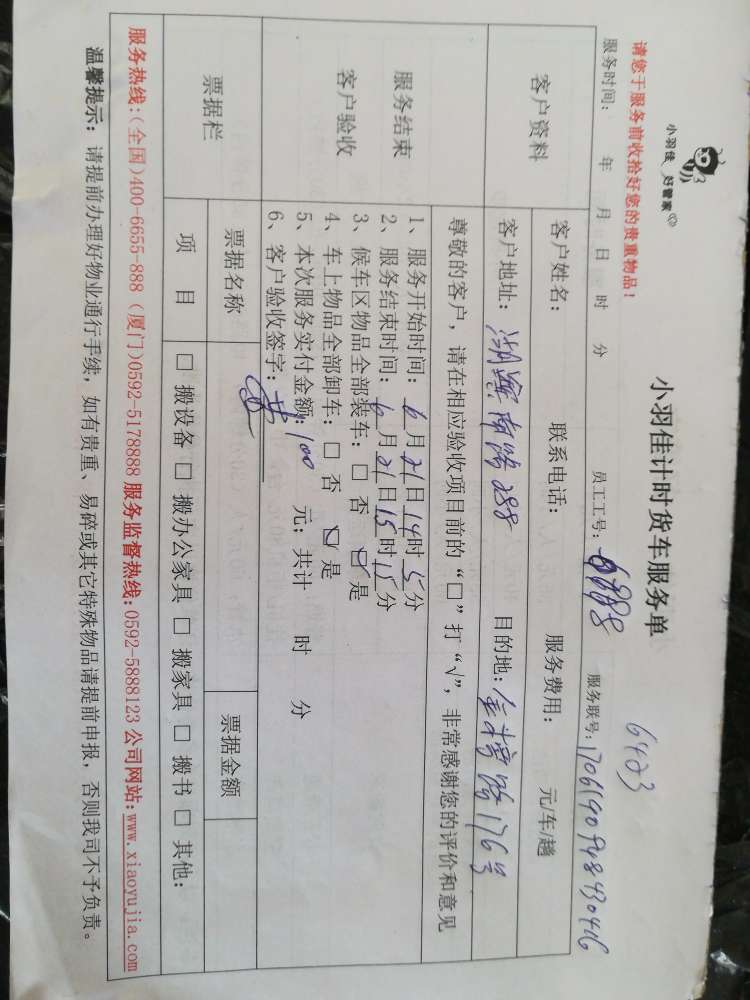 小羽佳 好管家
小羽佳计时货车服务单
6423
请您于服务前收拾好您的贵重物品！
服务时间： 年 月 日 时 分 员工工号： 服务联号：1706190948430416
客户资料 客户姓名： 联系电话： 服务费用： 元/车/趟
客户地址：湖滨南路288 目的地：金榜路176号
服务结束
客户验收
尊敬的客户，请在相应验收项目前的“□”打“√”，非常感谢您的评价和意见
1、服务开始时间：6月21日14时5分
2、服务结束时间：6月21日15时15分
3、候车区物品全部装车：□ 否 ☑ 是
4、车上物品全部卸车：□ 否 ☑ 是
5、本次服务实付金额：100 元；共计 时 分
6、客户验收签字：
票据栏 票据名称 票据金额
项 目 □ 搬设备 □ 搬办公家具 □ 搬家具 □ 搬书 □ 其他：
服务热线：(全国)400-6655-888 (厦门)0592-5178888 服务监督热线：0592-5888123 公司网站：www.xiaoyujia.com
温馨提示：请提前办理好物业通行手续，如有贵重、易碎或其它特殊物品请提前申报，否则我司不予负责。